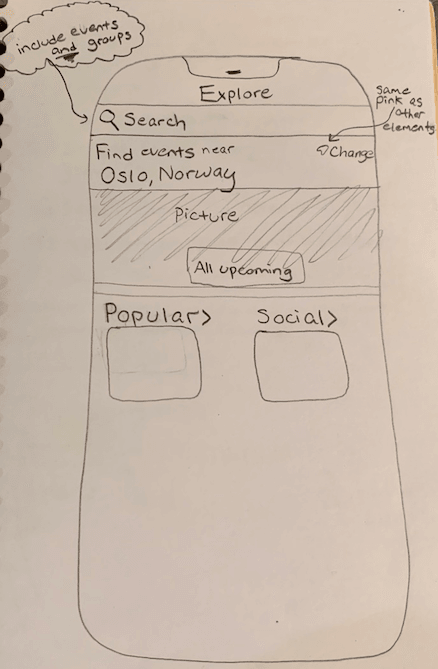 include events
and groups
Explore
Search
same
pink as
other
elements
Find events near
Change
Oslo, Norway
Picture
All upcoming
Popular>
Social>